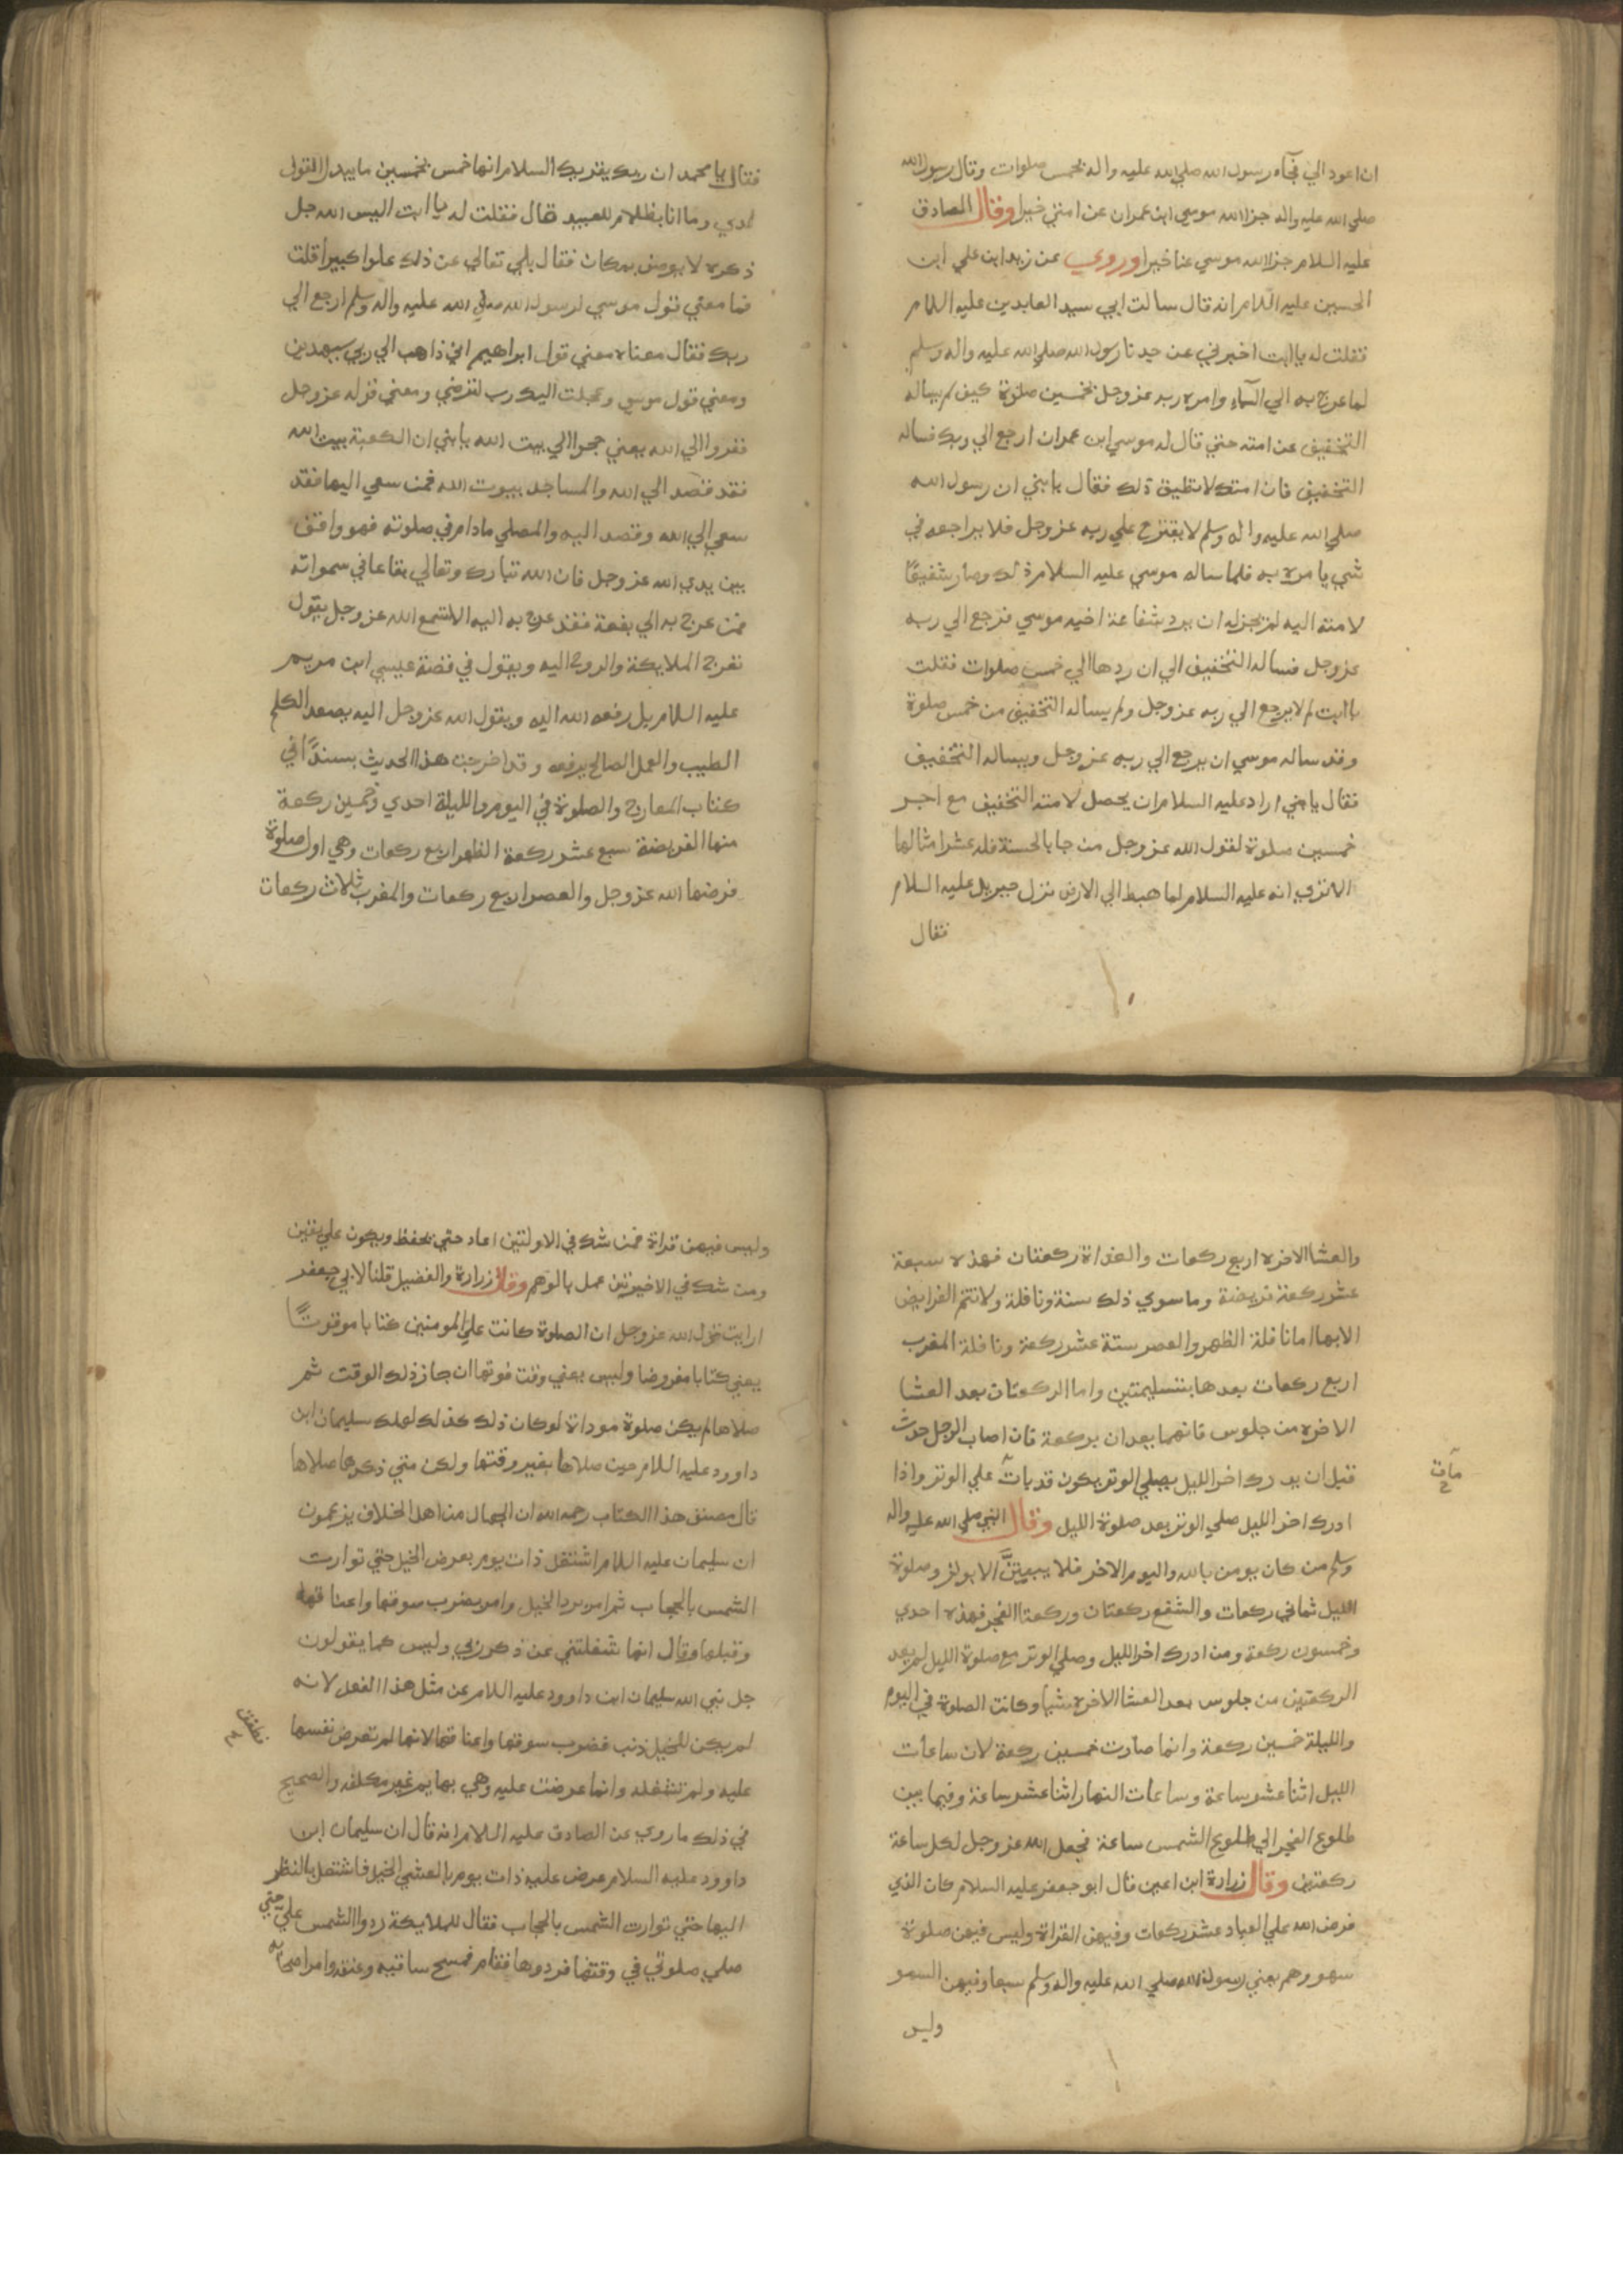 ان اعود الي فجآء رسول الله صلي الله عليه واله بخمس صلوات وقال رسول الله
صلي الله عليه واله جزا الله موسي ابن عمران عن امتي خيرا وقال الصادق
عليه السلام جزا الله موسي عنا خيرا وروي عن زيد ابن علي ابن
الحسين عليه السلام انه قال سالت ابي سيد العابدين عليه السلام
فقلت له يا ابت اخبرني عن جدنا رسول الله صلي الله عليه واله وسلم
لما عرج به الي السماء وامره ربه عز وجل بخمسين صلوة كيف لم يساله
التخفيف عن امته حتي قال له موسي ابن عمران ارجع الي ربك فساله
التخفيف فان امتك لا تطيق ذلك فقال يا بني ان رسول الله
صلي الله عليه واله وسلم لا يقترح علي ربه عز وجل فلا يراجعه في
شي يامره به فلما ساله موسي عليه السلام ذلك وصار شفيعًا
لامته اليه لم يجز له ان يرد شفاعة اخيه موسي فرجع الي ربه
عز وجل فساله التخفيف الي ان ردها الي خمس صلوات فقلت
يا ابت لم لا يرجع الي ربه عز وجل ولم يساله التخفيف من خمس صلوة
وقد ساله موسي ان يرجع الي ربه عز وجل ويساله التخفيف
فقال يا بني اراد عليه السلام ان يحصل لامته التخفيف مع اجر
خمسين صلوة لقول الله عز وجل من جا بالحسنة فله عشر امثالها
الا تري انه عليه السلام لما هبط الي الارض نزل جبريل عليه السلام
فقال
فقال يا محمد ان ربك يقريك السلام انها خمس بخمسين ما يبدل القول
لدي وما انا بظلام للعبيد قال فقلت له يا ابت اليس الله جل
ذكره لا يوصف بمكان فقال بلي تعالي عن ذلك علوا كبيرا قلت
فما معني قول موسي لرسول الله صلي الله عليه واله وسلم ارجع الي
ربك فقال معناه معني قول ابراهيم اني ذاهب الي ربي سيهدين
ومعني قول موسي وعجلت اليك رب لترضي ومعني قوله عز وجل
ففروا الي الله يعني حجوا الي بيت الله يا بني ان الكعبة بيت الله
فقد قصد الي الله والمساجد بيوت الله فمن سعي اليها فقد
سعي الي الله وقصد اليه والمصلي ما دام في صلوته فهو واقف
بين يدي الله عز وجل فان الله تبارك وتعالي بقاعا في سمواته
فمن عرج به الي بقعة فقد عرج به اليه الا تسمع الله عز وجل يقول
تعرج الملايكة والروح اليه ويقول في قضة عيسي ابن مريم
عليه السلام بل رفعه الله اليه ويقول الله عز وجل اليه يصعد الكلم
الطيب والعمل الصالح يرفعه وقد اخرجت هذا الحديث بسندًا في
كتاب المعارج والصلوة في اليوم والليلة احدي وخمسين ركعة
منها الفريضة سبع عشر ركعة الظهر اربع ركعات وهي اول صلوة
فرضها الله عز وجل والعصر اربع ركعات والمغرب ثلاث ركعات
والعشا الاخره اربع ركعات والغداة ركعتان فهذه سبعة
عشر ركعة فريضة وما سوي ذلك سنة ونافلة ولا تتم الفرايض
الا بها اما نافلة الظهر والعصر ستة عشر ركعة ونافلة المغرب
اربع ركعات بعدها بتسليمتين واما الركعتان بعد العشا
الاخره من جلوس فانهما يعدان بركعة فان اصاب الرجل حدث
قبل ان يدرك اخر الليل يصلي الوتر يكون قد بات علي الوتر واذا
مات
ادرك اخر الليل صلي الوتر بعد صلوة الليل وقال النبي صلي الله عليه واله
وسلم من كان يومن بالله واليوم الاخر فلا يبيتنَّ الا بوتر وصلوة
الليل ثماني ركعات والشفع ركعتان وركعة الفجر فهذه احدي
وخمسون ركعة ومن ادرك اخر الليل وصلي الوتر مع صلوة الليل لم يعد
الركعتين من جلوس بعد العشا الاخره شيا وكانت الصلوة في اليوم
والليلة خمسين ركعة وانما صارت خمسين ركعة لان ساعات
الليل اثنا عشر ساعة وساعات النهار اثنا عشر ساعة وفيما بين
طلوع الفجر الي طلوع الشمس ساعة فجعل الله عز وجل لكل ساعة
ركعتين وقال زرارة ابن اعين قال ابو جعفر عليه السلام كان الذي
فرض الله علي العباد عشر ركعات وفيهن القراة وليس فيهن صلوة
سهو وهم يعني رسول الله صلي الله عليه واله وسلم سبعا وفيهن السهو
وليس
وليس فيهن قراة فمن شك في الاولتين اعاد حتي يحفظ ويكون علي يقين
ومن شك في الاخيرتين عمل بالوهم وقال زرارة والفضيل قلنا لابي جعفر
ارايت قول الله عز وجل ان الصلوة كانت علي المومنين كتابا موقوتًا
يعني كتابا مفروضا وليس يعني وقت فوتها ان جاز ذلك الوقت ثم
صلاها لم يكن صلوة موداة لو كان ذلك كذلك لهلك سليمان ابن
داوود عليه السلام حين صلاها بغير وقتها ولكن متي ذكرها صلاها
قال مصنف هذا الكتاب رحمه الله ان الجهال من اهل الخلاف يزعمون
ان سليمان عليه السلام اشتغل ذات يوم بعرض الخيل حتي توارت
الشمس بالحجاب ثم امر برد الخيل وامر بضرب سوقها واعناقها
وقتلها وقال انها شغلتني عن ذكر ربي وليس كما يقولون
جل نبي الله سليمان ابن داوود عليه السلام عن مثل هذا الفعل لانه
لم يكن للخيل ذنب فضرب سوقها واعناقها لانها لم تعرض نفسها
عليه ولم تشغله وانما عرضت عليه وهي بهايم غير مكلفه والصحيح
في ذلك ما روي عن الصادق عليه السلام انه قال ان سليمان ابن
داوود عليه السلام عرض عليه ذات يوم بالعشي الخيل فاشتغل بالنظر
اليها حتي توارت الشمس بالحجاب فقال للملايكة ردوا الشمس عليّ حتي
صلي صلوتي في وقتها فردوها فقام فمسح ساقيه وعنقه وامر اصحابه